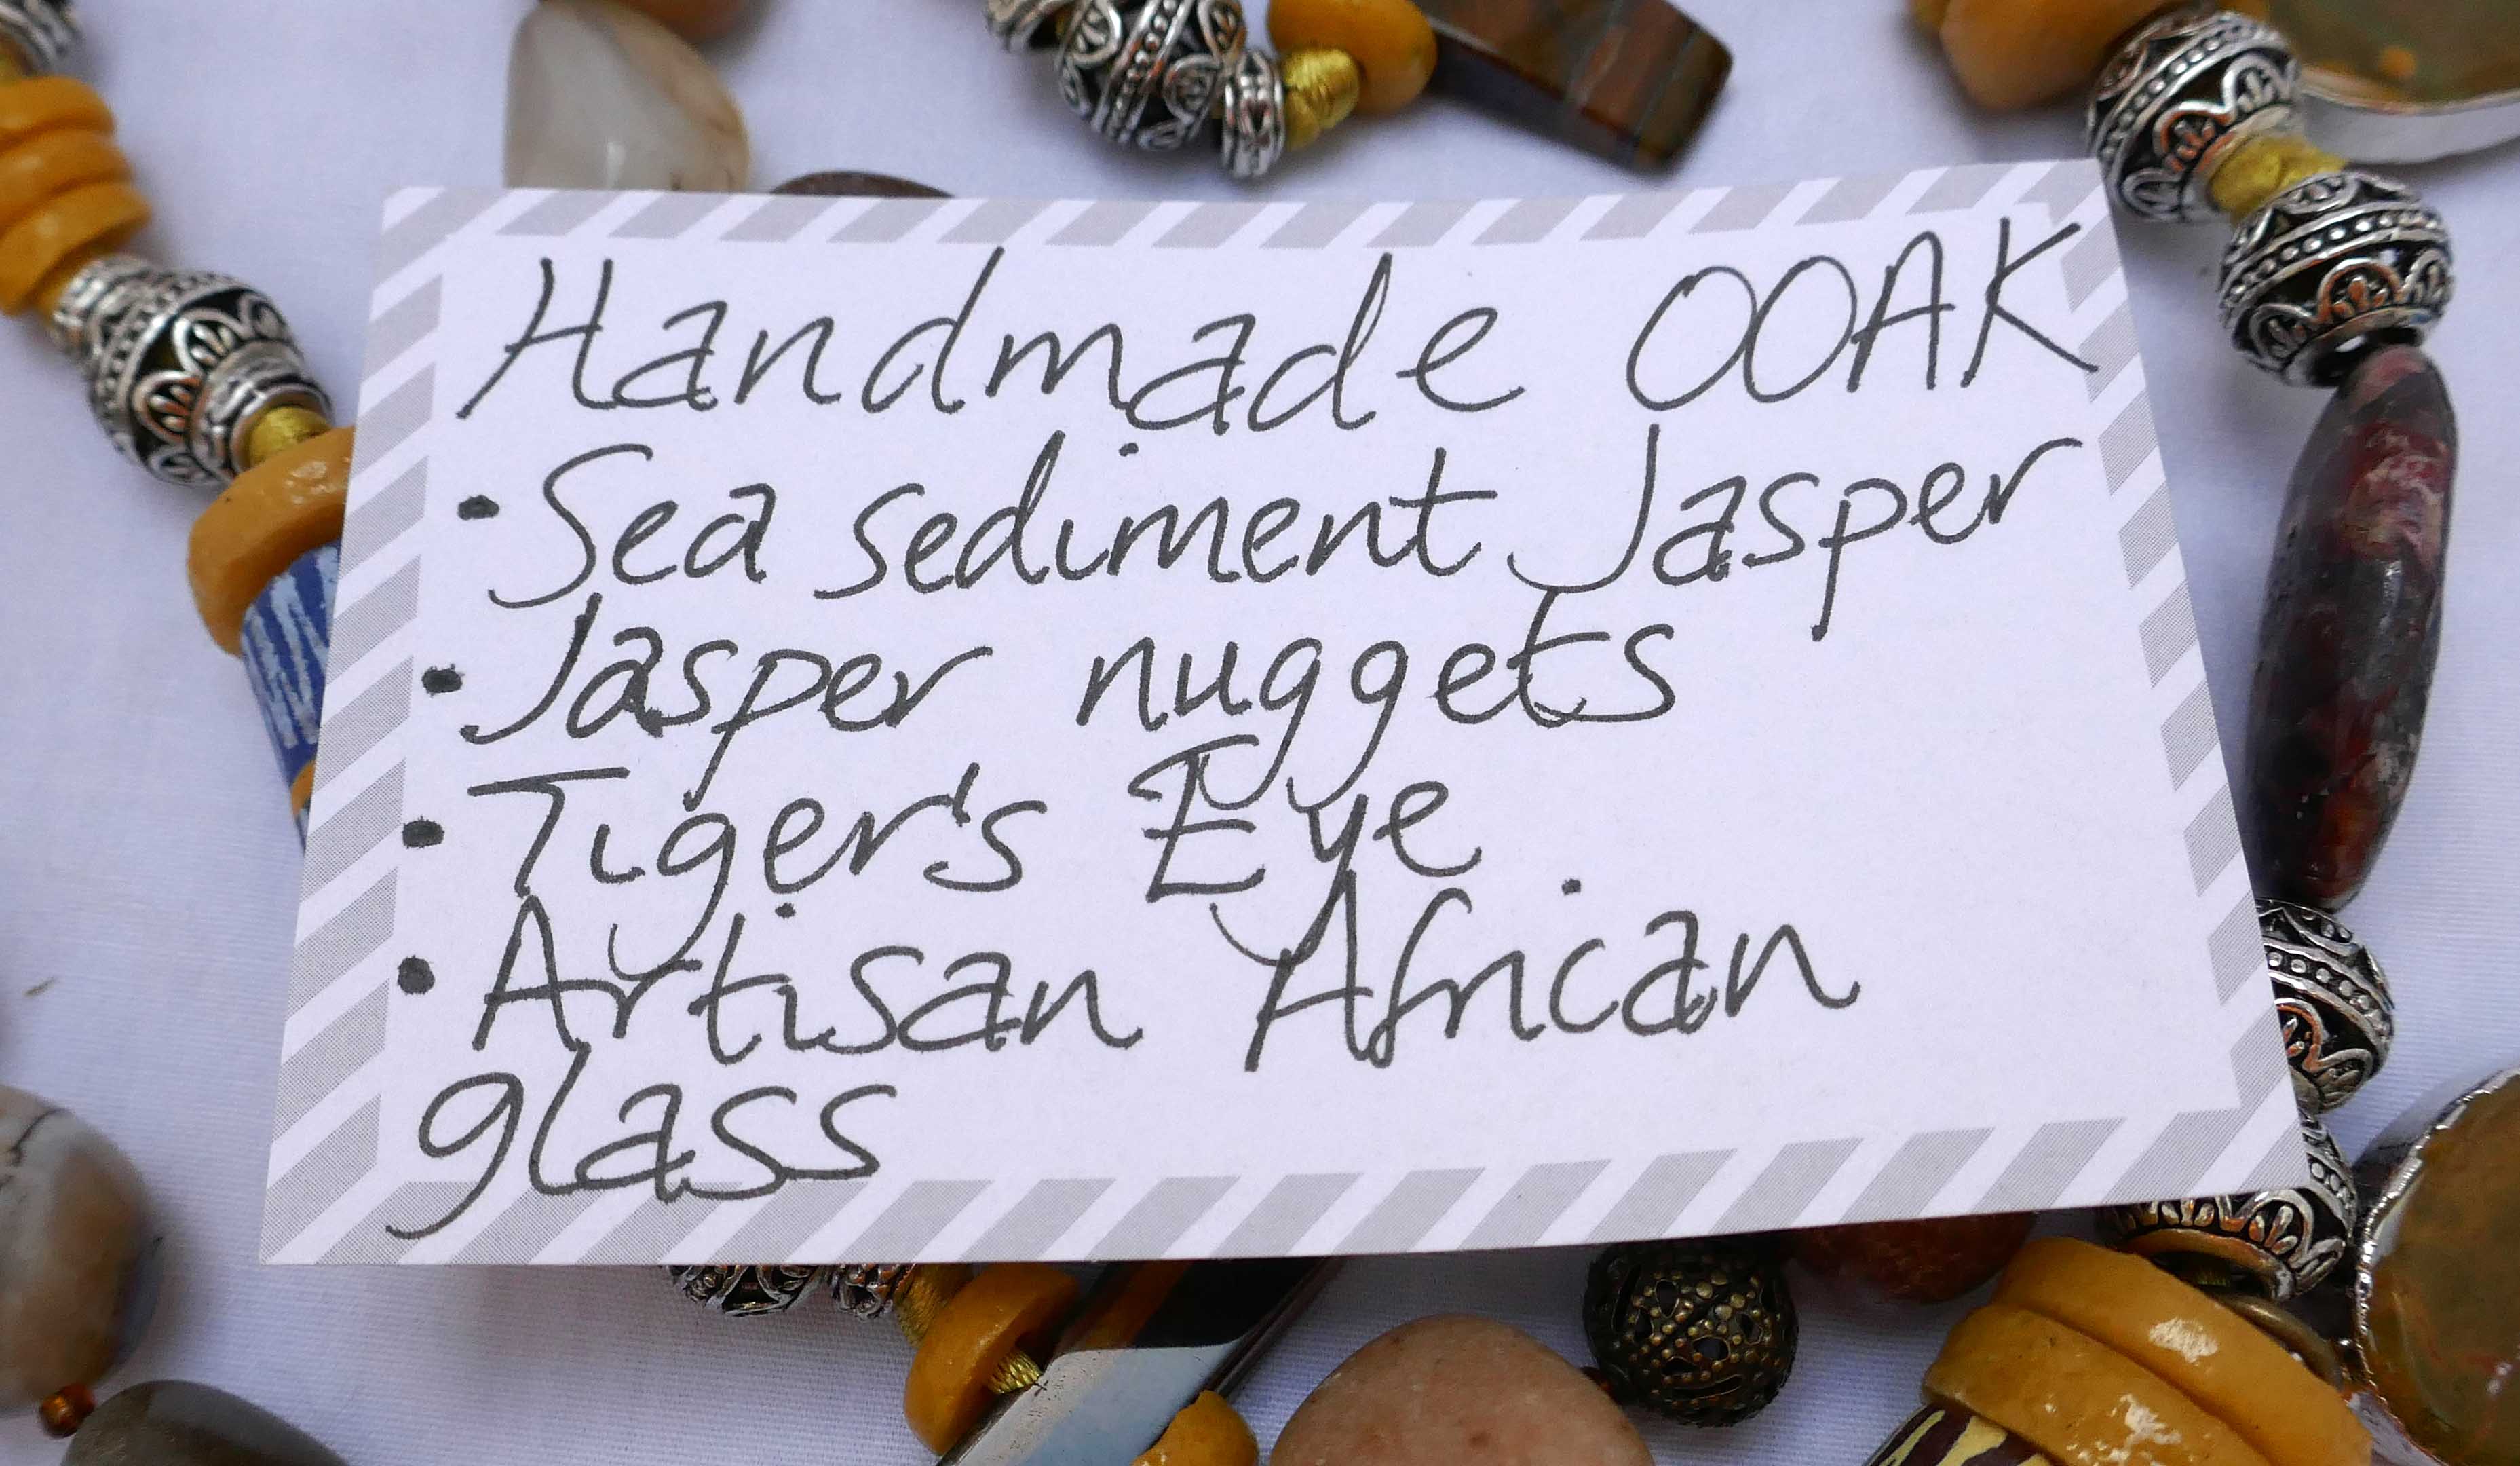 Handmade OOAK
• Sea sediment Jasper
• Jasper nuggets
• Tiger's Eye
• Artisan African
glass